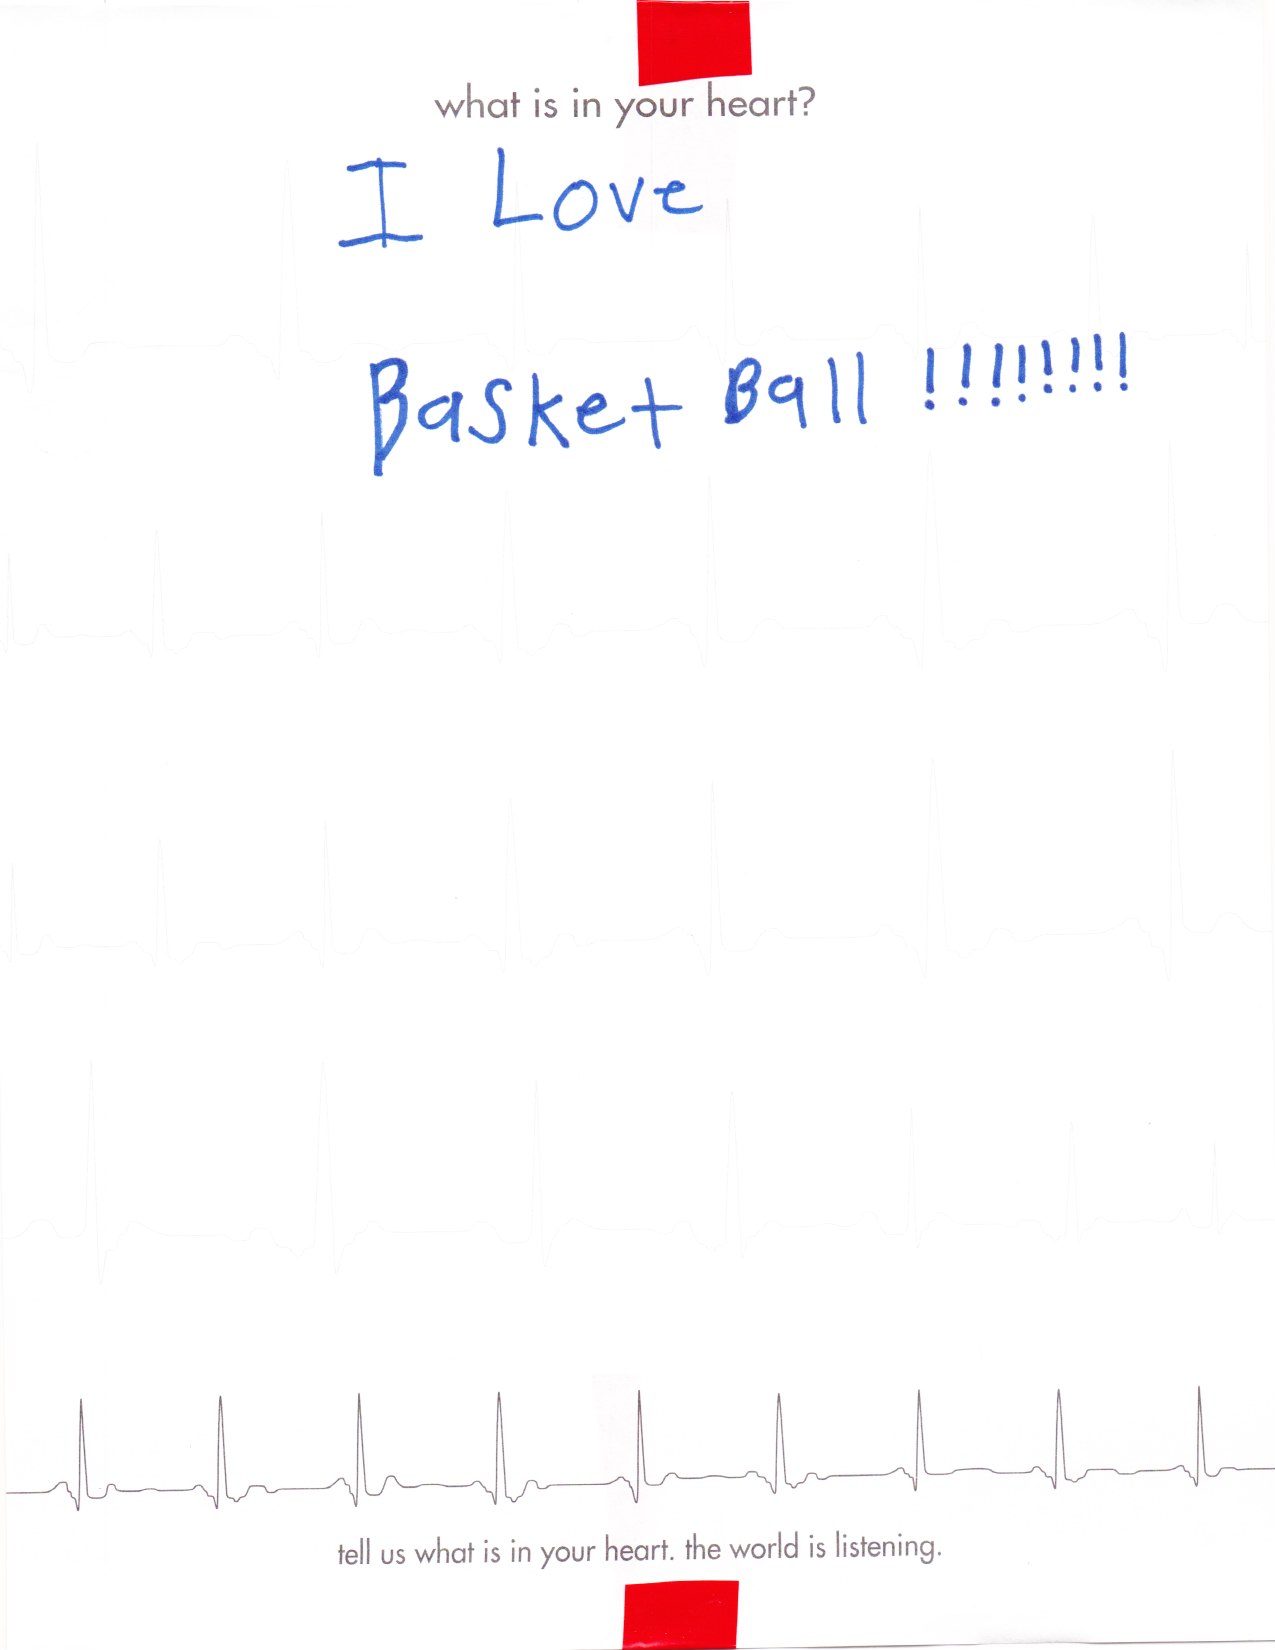 what is in your heart?
I Love
Basket Ball !!!!!!!!
tell us what is in your heart. the world is listening.